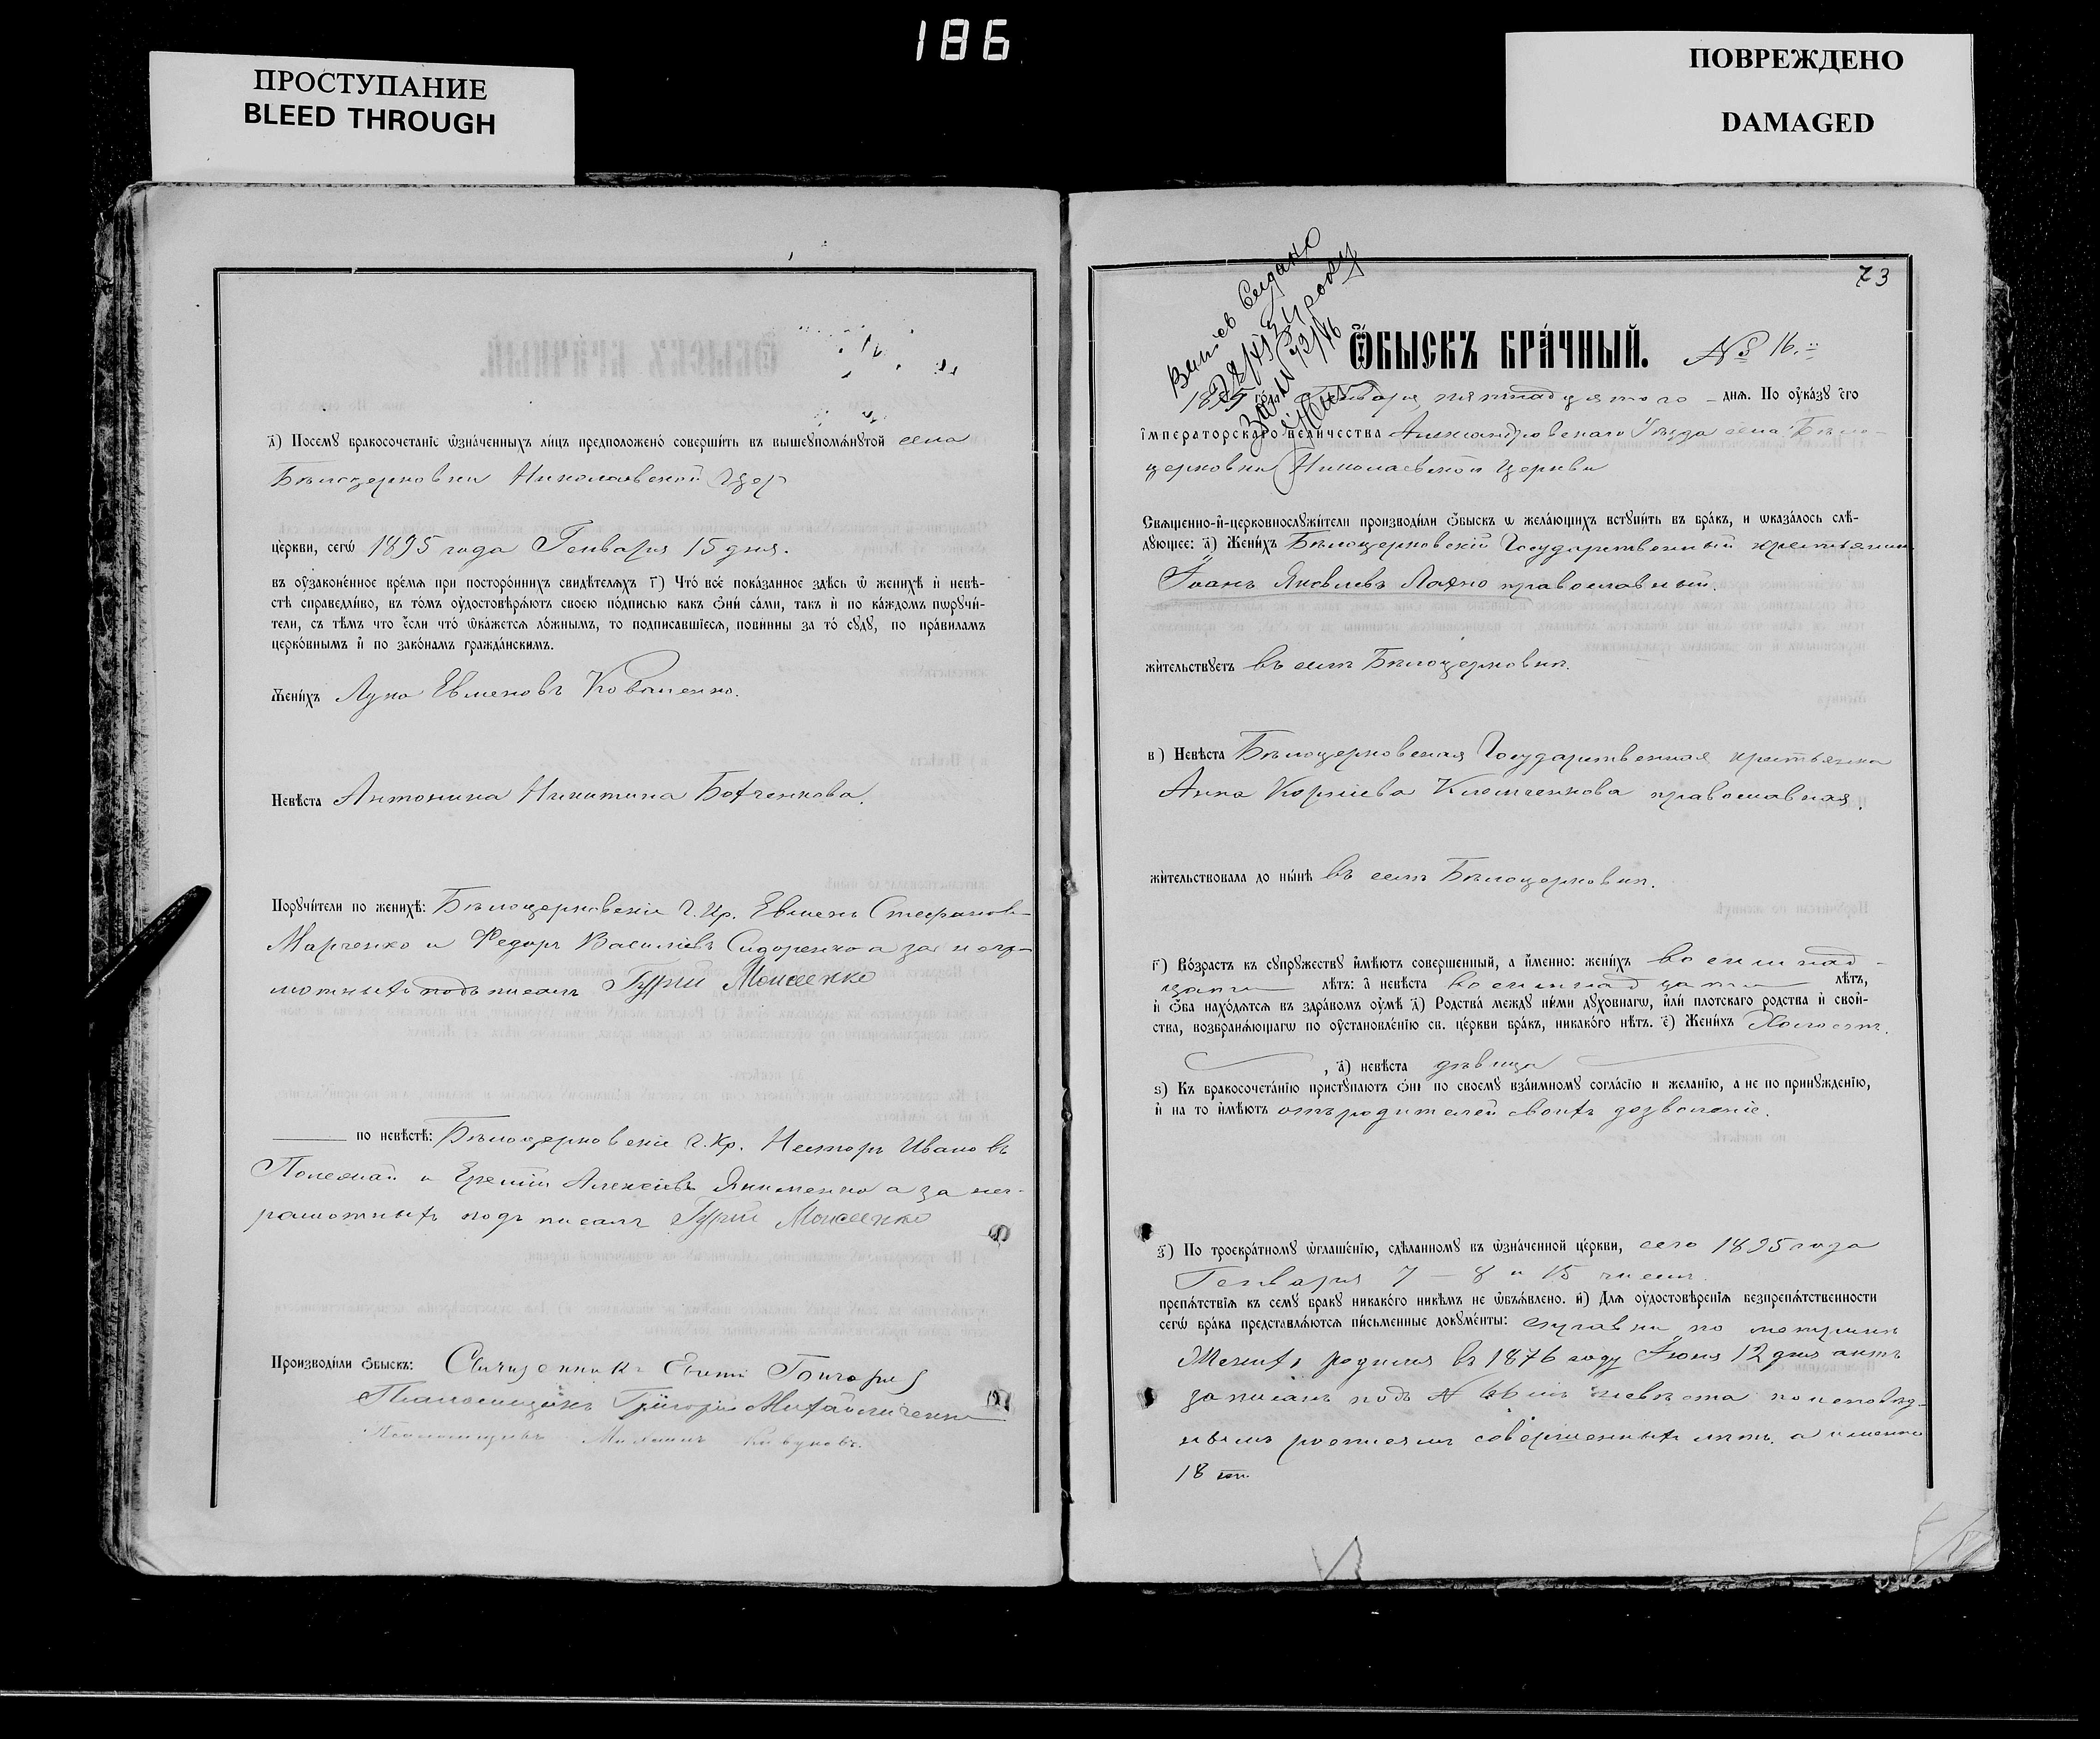 186
ПРОСТУПАНИЕ
BLEED THROUGH
ПОВРЕЖДЕНО
DAMAGED
а҃) Посемꙋ бракосочетаніе ѡзна́ченныхъ ли́цъ предположено́ соверши́ть въ вышеꙋпомѧ́нꙋтой села
Бѣлоцерковки Николаевской Цер
це́ркви, сегѡ̀ 1895 года Генваря 15 дня.
въ оу҆зако́не́нное вре́мѧ при посторо́ннихъ свидѣ́телѧхъ г҃) Что́ все́ пока́занное здѣ́сь ѡ женихѣ̀ и҆ невѣ-
стѣ справедли́во, въ то́мъ оу҆достовѣрѧ́ютъ своею по́дписью какъ ѻ҆ни́ са́ми, такъ и҆ по ка́ждомъ порꙋчи́-
тели, съ тѣ́мъ что є҆́сли что́ ѡ҆ка́жетсѧ ло́жнымъ, то подписавші́есѧ, пови́нны за то́ сꙋдꙋ, по пра́виламъ
церко́внымъ и҆ по зако́намъ гражда́нскимъ.
Жени́хъ Лука Евменовъ Коваленко.
Невѣ́ста Антонина Никитина Ботченкова.
Порꙋчи́тели по женихѣ̀: Бѣлоцерковскіе Г. Кр. Евменъ Стефановъ
Марченко и Федоръ Василіевъ Сидоренко а за негра-
мотныхъ подъписалъ Гурій Моисеенко
по невѣ́стѣ: Бѣлоцерковскіе Г. Кр. Несторъ Ивановъ
и Алексіевъ Якименко а за нег-
рамотныхъ подъ писалъ Гурій Моисеенко
Производи́ли ѻ҆быскъ: Священникъ
Псаломщикъ Григорій Михайличенко
Псаломщикъ Михаилъ
73
Ѻ҆́быскъ бра́чный. № 16.
1895 го́да Генваря пятнадцятого днѧ. По оу҆ка́зꙋ є҆гѡ
і҆мператорскагѡ вели́чества Александровскаго Уѣзда села Бѣло-
церковки Николаевской Церкви
Свѧщенно-и҆-церковнослꙋжи́тели производи́ли ѻ҆быскъ ѡ жела́ющихъ встꙋпи́ть въ бра́къ, и ѡказа́лось слѣ́-
дꙋющее: а҃) Жени́хъ Бѣлоцерковскій Государственный крестьянинъ
Іоанъ Яковлевъ Лахно православный.
жи́тельствꙋетъ въ селѣ Бѣлоцерковки.
в҃) Невѣ́ста Бѣлоцерковская Государственная крестьянка
Анна Корніева Климченкова православная.
жи́тельствовала до ны́нѣ въ селѣ Бѣлоцерковки.
г҃) Во́зрастъ къ сꙋпрꙋжествꙋ и҆мѣ́ютъ соверше́нный, а и҆́менно: жени́хъ восемнад-
цати лѣ́тъ: а҆ невѣ́ста восемнадцати лѣ́тъ,
и҆ ѻ҆ба нахо́дѧтсѧ въ здра́вомъ оу҆мѣ̀ д҃) Родства̀ междꙋ ни́ми дꙋхо́внагѡ, и҆лѝ пло́тскаго родства̀ и҆ свой-
ства, возбранѧ́ющагѡ по оу҆становле́нію св. це́ркви бра́къ, никако́го нѣ́тъ. є҃) Жени́хъ Холостъ.
, а҃) невѣ́ста дѣвица
ѕ҃) Къ бракосочета́нію пристꙋпа́ютъ ѻ҆нѝ по своемꙋ̀ взаи́мномꙋ согла́сію и жела́нію, а не по принꙋжде́нію,
и҆ на то и҆мѣ́ютъ отъ родителей своихъ дозволеніе.
з҃) По троекра́тномꙋ ѡ҆глаше́нію, сдѣ́ланномꙋ въ ѡ҆зна́ченной це́ркви, сего 1895 года
Генваря 7 – 8 и 15 числъ.
препѧ́тствіѧ къ семꙋ̀ бра́кꙋ никако́го никѣ́мъ не ѡ҆бъѧ́влено. и҃) Длѧ оу҆достовѣре́нія безпрепѧ́тственности
сегѡ̀ бра́ка представлѧ́ютсѧ пи́сьменные докꙋме́нты: справки по метрикѣ
Женихъ родился въ 1876 году Іюня 12 дня актъ
записанъ подъ № невѣста по исповѣд-
нымъ росписямъ совершенныхъ лѣтъ. а именно
18 лѣт.